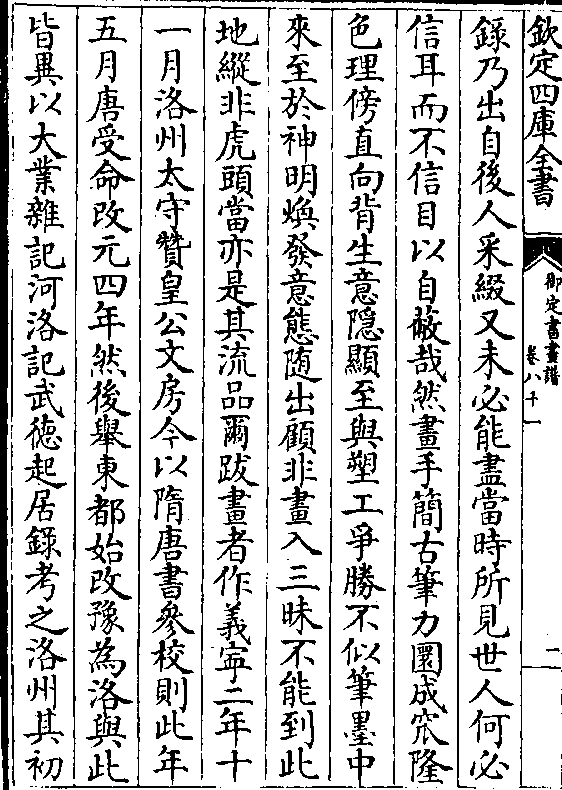 欽定四庫全書
御定書畫譜
卷八十一
錄乃出自後人采綴又未必能盡當時所見世人何必
信耳而不信目以自蔽哉然畫手簡古筆力圜成窊隆
色理傍直向背生意隱顯至與塑工爭勝不似筆墨中
來至於神明煥發意態随出顧非畫入三昧不能到此
地縱非虎頭當亦是其流品爾跋畫者作義寕二年十
一月洛州太守贊皇公文房今以隋唐書參校則此年
五月唐受命改元四年然後舉東都始改豫為洛與此
皆異以大業雜記河洛記武德起居錄考之洛州其初